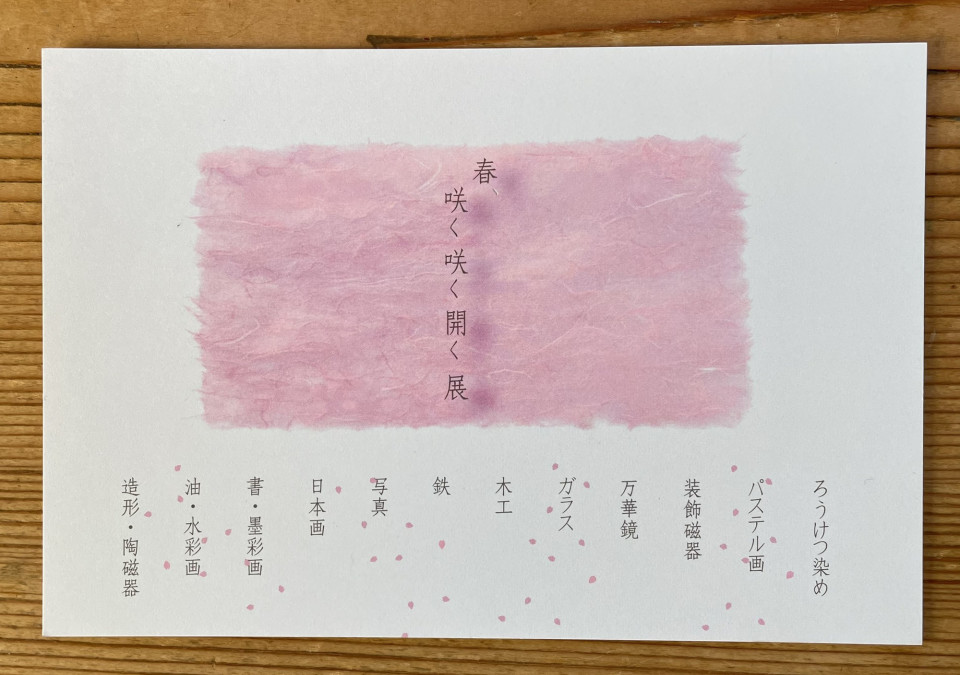 春、
咲く咲く開く展
ろうけつ染め
パステル画
装飾磁器
万華鏡
ガラス
木工
鉄
写真
日本画
書・墨彩画
油・水彩画
造形・陶磁器